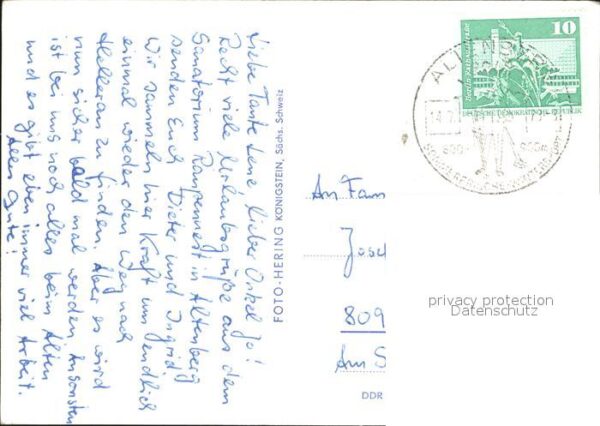 Liebe Tante Lene, lieber Onkel Jo!
Recht viele Urlaubsgrüße aus dem
Sanatorium Raupennest in Altenberg
senden Euch Dieter und Ingrid.
Wir sammeln hier Kraft um endlich
einmal wieder den Weg nach
Hellerau zu finden. Aber es wird
nun sicher bald mal werden. Ansonsten
ist bei uns noch alles beim Alten
und es gibt eben immer viel Arbeit.
Alles Gute!
FOTO-HERING KÖNIGSTEIN, Sächs. Schweiz
10
Berlin, Rathausstraße
DEUTSCHE DEMOKRATISCHE REPUBLIK
ALTENBERG
14.7.
An Fam
Josef
809
Am S
DDR
privacy protection
Datenschutz